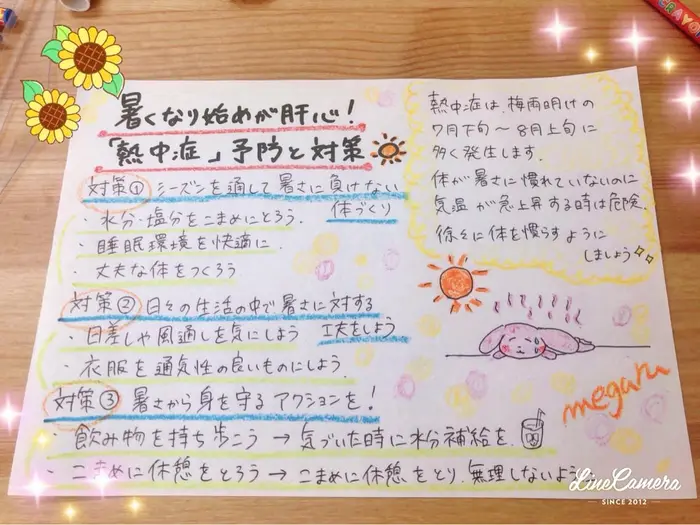 暑くなり始めが肝心!
「熱中症」予防と対策
対策① シーズンを通して暑さに負けない
体づくり
・水分・塩分をこまめにとろう.
・睡眠環境を快適に.
・丈夫な体をつくろう
対策② 日々の生活の中で暑さに対する
工夫をしよう
・日差しや風通しを気にしよう
・衣服を通気性の良いものにしよう.
対策③ 暑さから身を守るアクションを!
・飲み物を持ち歩こう → 気づいた時に水分補給を.
・こまめに休憩をとろう → こまめに休憩をとり、無理しないよう
熱中症は、梅雨明けの
7月下旬～8月上旬に
多く発生します.
体が暑さに慣れていないのに
気温が急上昇する時は危険.
徐々に体を慣らすように
しましょう
megaru
CRAYON
LineCamera
SINCE 2012